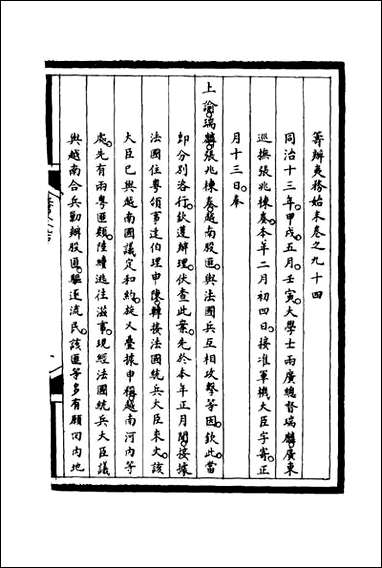 籌辦夷務始末卷之九十四
同治十三年。甲戌五月。壬寅。大學士兩廣總督瑞麟。廣東
巡撫張兆棟奏。本年二月初四日。接准軍機大臣字寄正
月十三日。奉
上諭。瑞麟張兆棟奏。越南股匪與法國兵互相攻擊等因。欽此。當
卽分別咨行。欽遵辦理。伏查此案。先於本年正月間。接據
法國住粵領事達伯理申陳。轉接法國統兵大臣來文。該
大臣已與越南國議定和約。旋又疊據申稱。越南河內等
處。先有兩粵匪類。陸續逃往滋事。現經法國統兵大臣議
與越南合兵勦辦股匪。驅逐流民。該匪等多有願回內地